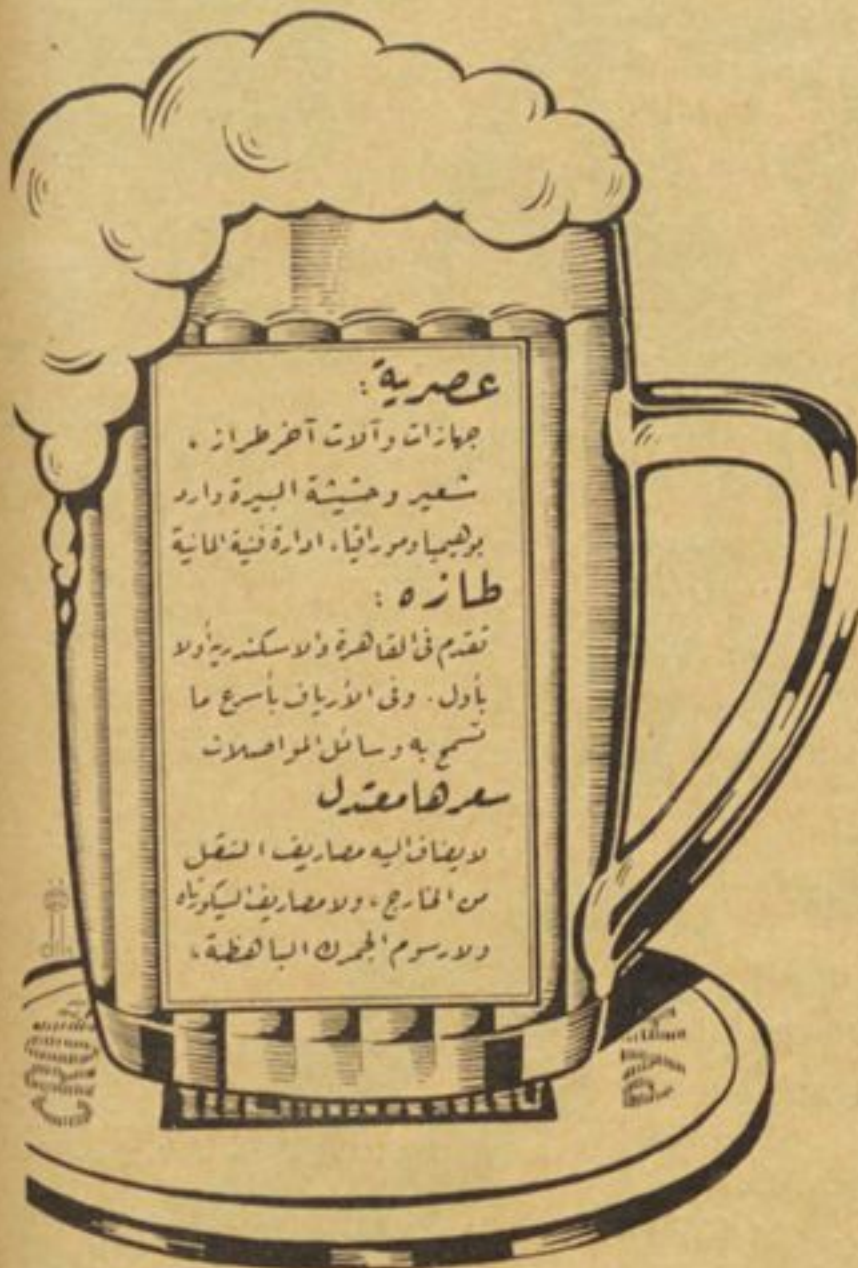 عصرية :
جهازات وآلات آخر طراز ،
شعير وحشيشة البيرة وارد
بوهيميا ومورافيا ، ادارة فنية المانية
طازه :
تقدم فى القاهرة والاسكندرية أولا
بأول . وفى الأرياف بأسرع ما
تسمح به وسائل المواصلات
سعرها معتدل
لا يضاف اليه مصاريف النقل
من الخارج ، ولا مصاريف السيكورتاه
ولا رسوم الجمرك الباهظة ،